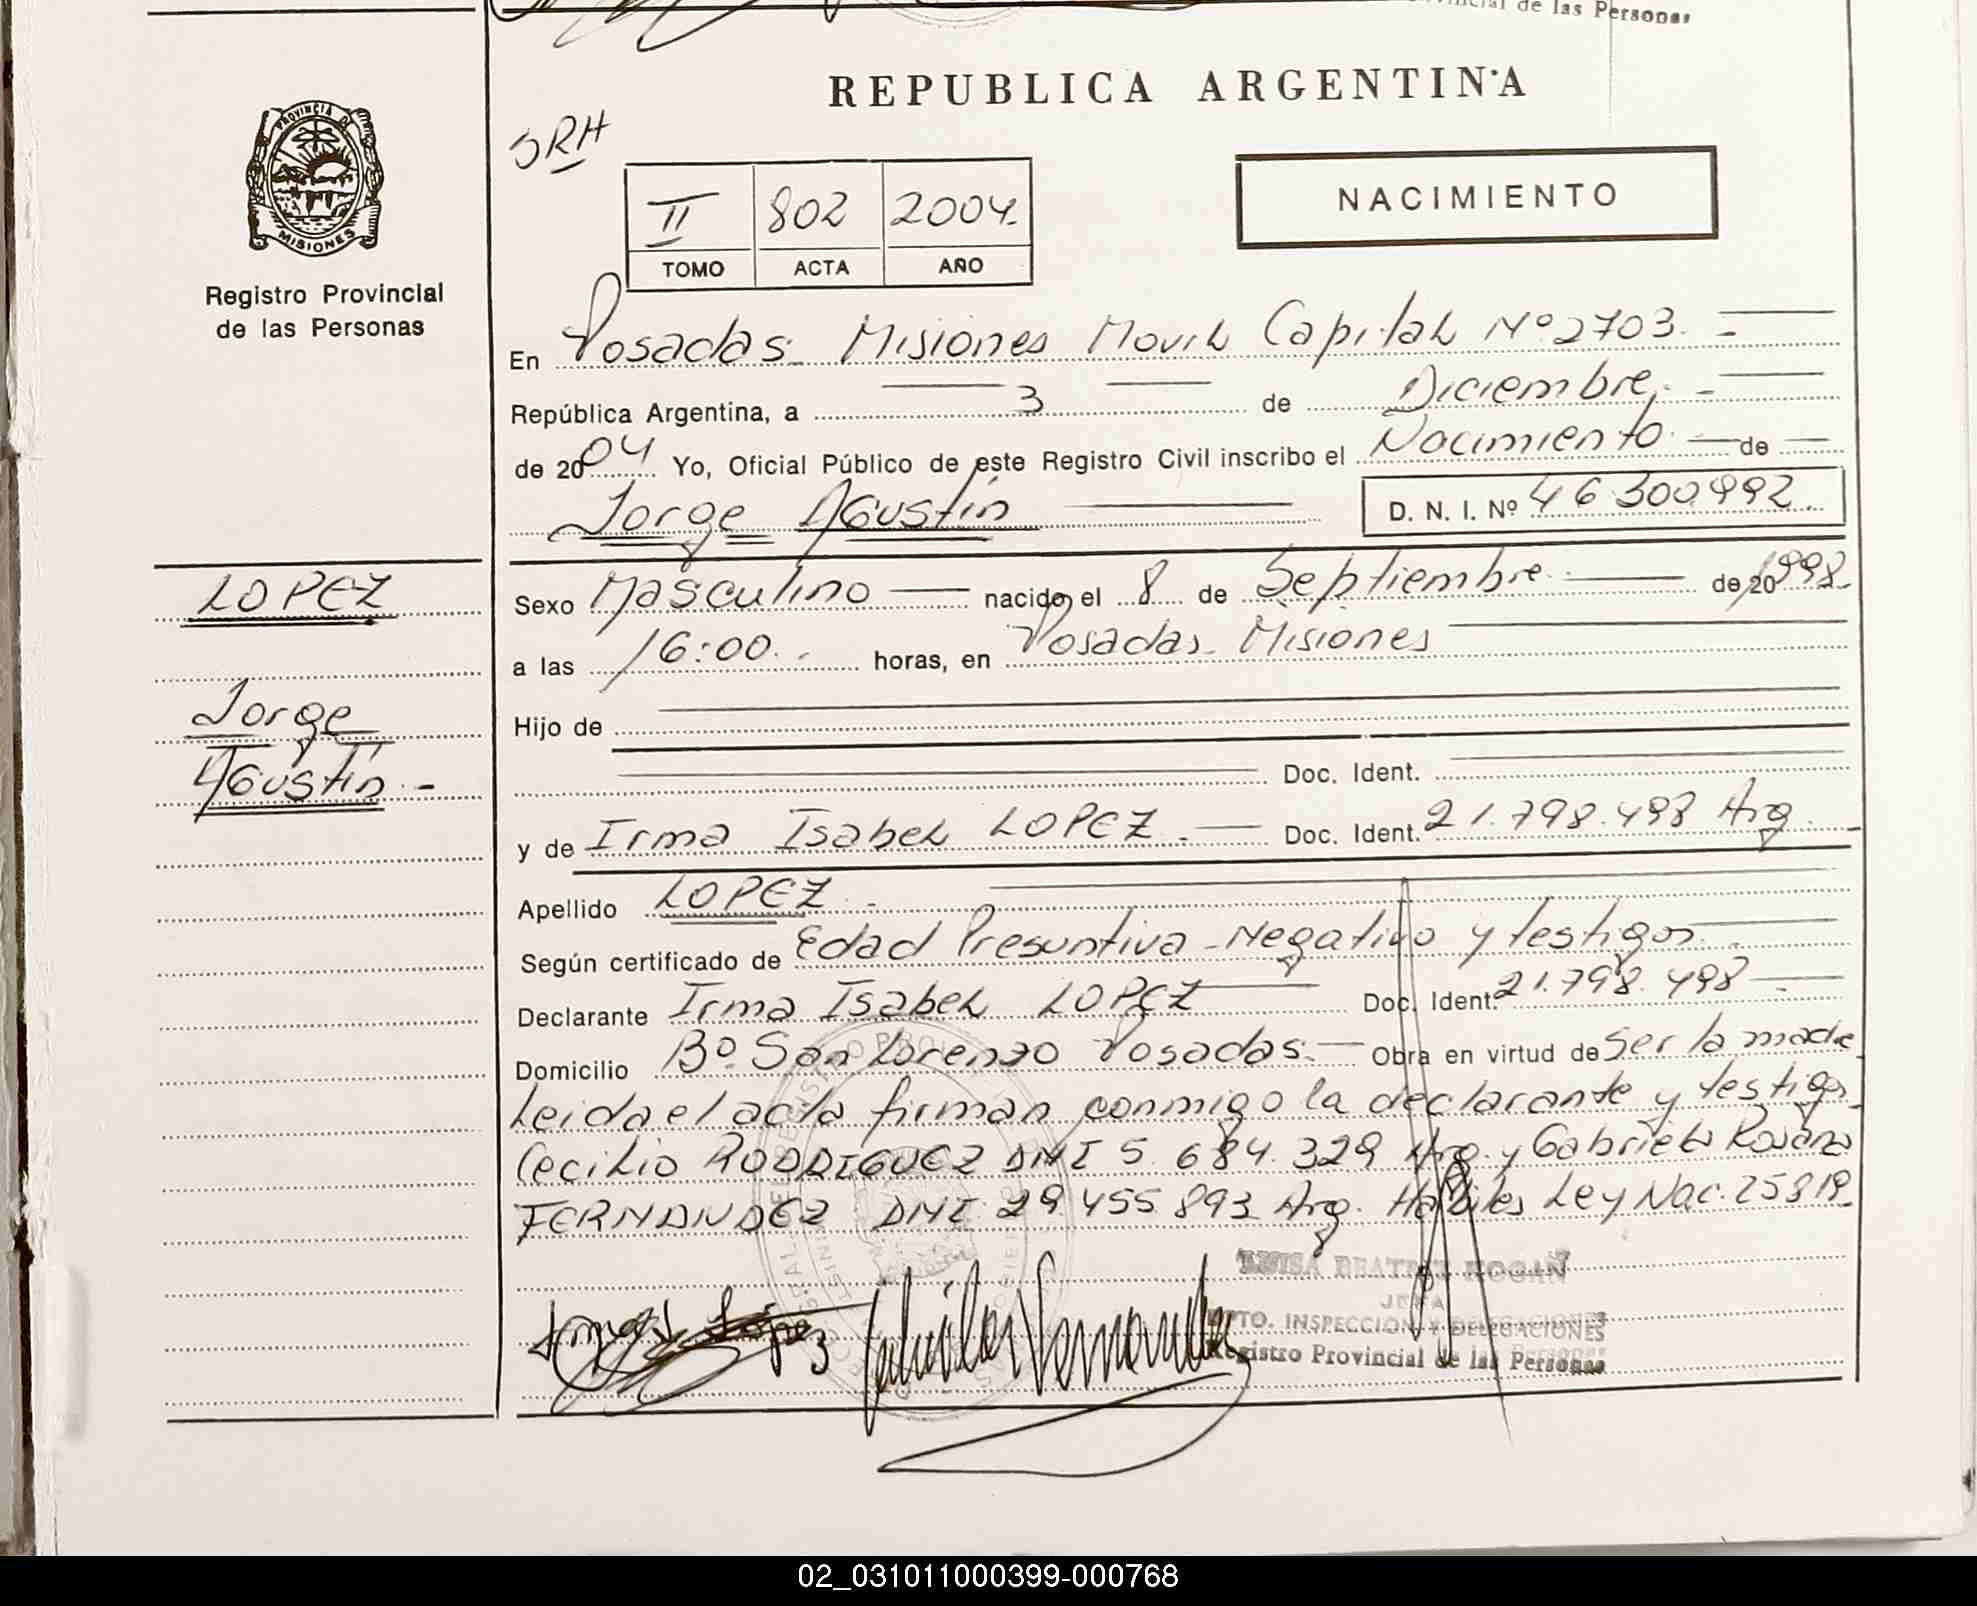 de las Personas
REPUBLICA ARGENTINA
PROVINCIA DE
MISIONES
Registro Provincial
de las Personas
SRH
II 802 2004.
TOMO ACTA AÑO
NACIMIENTO
En Posadas Misiones Movil Capital Nº 2703.
República Argentina, a 3 de Diciembre
de 2004 Yo, Oficial Público de este Registro Civil inscribo el Nacimiento de
Jorge Agustín D. N. I. Nº 46300992
LOPEZ
Jorge
Agustín
Sexo Masculino nacido el 8 de Septiembre de 20 1998
a las 16:00 horas, en Posadas Misiones
Hijo de
Doc. Ident.
y de Irma Isabel LOPEZ Doc. Ident. 21.798.498 Arg.
Apellido LOPEZ
Según certificado de Edad Presuntiva Negativo y testigos
Declarante Irma Isabel LOPEZ Doc. Ident. 21.798.498
Domicilio Bº San Lorenzo Posadas. Obra en virtud de ser la madre
Leida el acta firman conmigo la declarante y testigos
Cecilio RODRIGUEZ DNI 5.684.329 Arg. y Gabriela Rosana
FERNANDEZ DNI 29 455 893 Arg. Habiles Ley Nac. 25819
LUISA BEATRIZ HOGAN
JEFA
DPTO. INSPECCION Y DELEGACIONES
Registro Provincial de las Personas
02_031011000399-000768